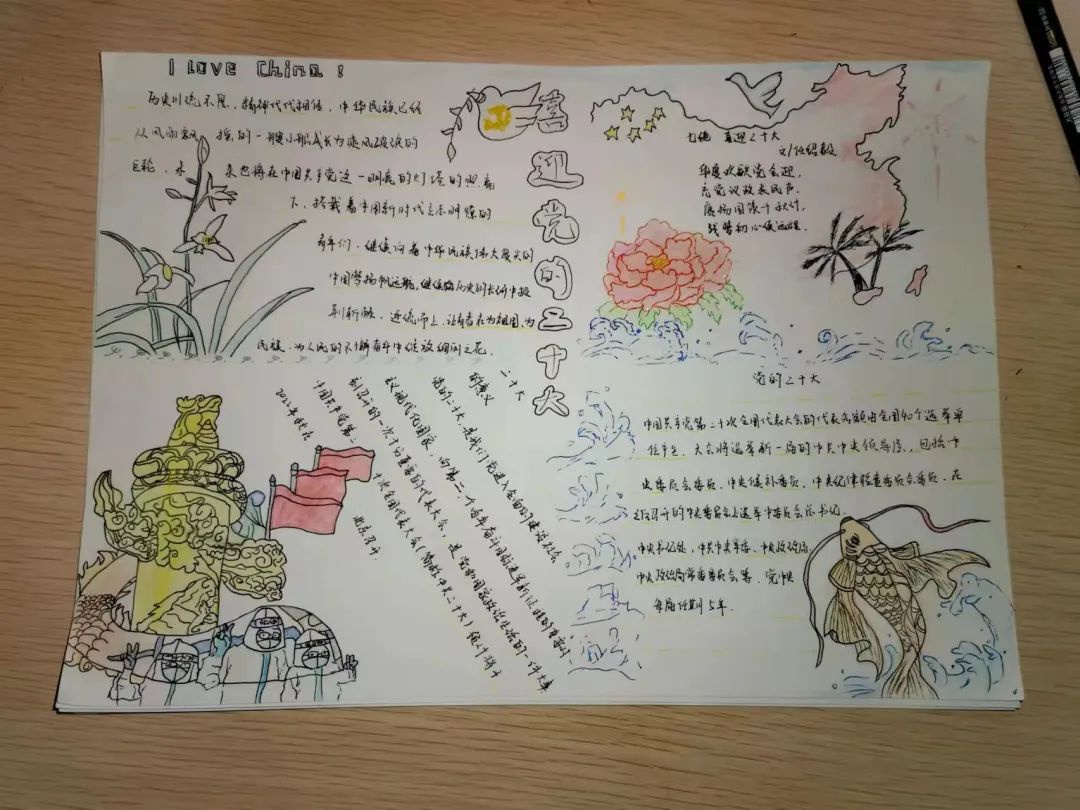 I LOVE China !
历史川流不息，精神代代相传，中华民族已经
从风雨飘摇的一艘小船成长为乘风破浪的
巨轮，未来也将在中国共产党这一明亮的灯塔的照亮
下，搭载着中国新时代之
青年们，继续向着中华民族伟大复兴的
中国梦扬帆远航，继续在历史的长河中
逆流而上，让青春在为祖国、为
民族、为人民的不懈奋斗中绽放绚丽之花。
喜迎党的二十大
七绝 喜迎二十大
文/任绍毅
华厦欢歌党会迎，
克党议政表民声。
宏扬国策千秋计，
践梦初心
二十大
的意义
党的二十大，是我们党进入全面建设社会
主义现代化国家、向第二个百年奋斗目标进军新征程的重要时
刻召开的一次十分重要的代表大会，是党和国家政治生活的一件大事
中国共产党第二十次全国代表大会（简称中共二十大）
2022年
北京召开
党的二十大
中国共产党第二十次全国代表大会的代表名额由全国40个选举单
位产生。大会将选举新一届的中共中央领导层，包括中
央委员会委员、中央候补委员、中央纪律检查委员会委员，在
之后召开的中央委员会上选举中委员会总书记。
中央书记处、中共中央军委、中央政治局、
中央政治局常委委员会等。党中央
每届任期5年。